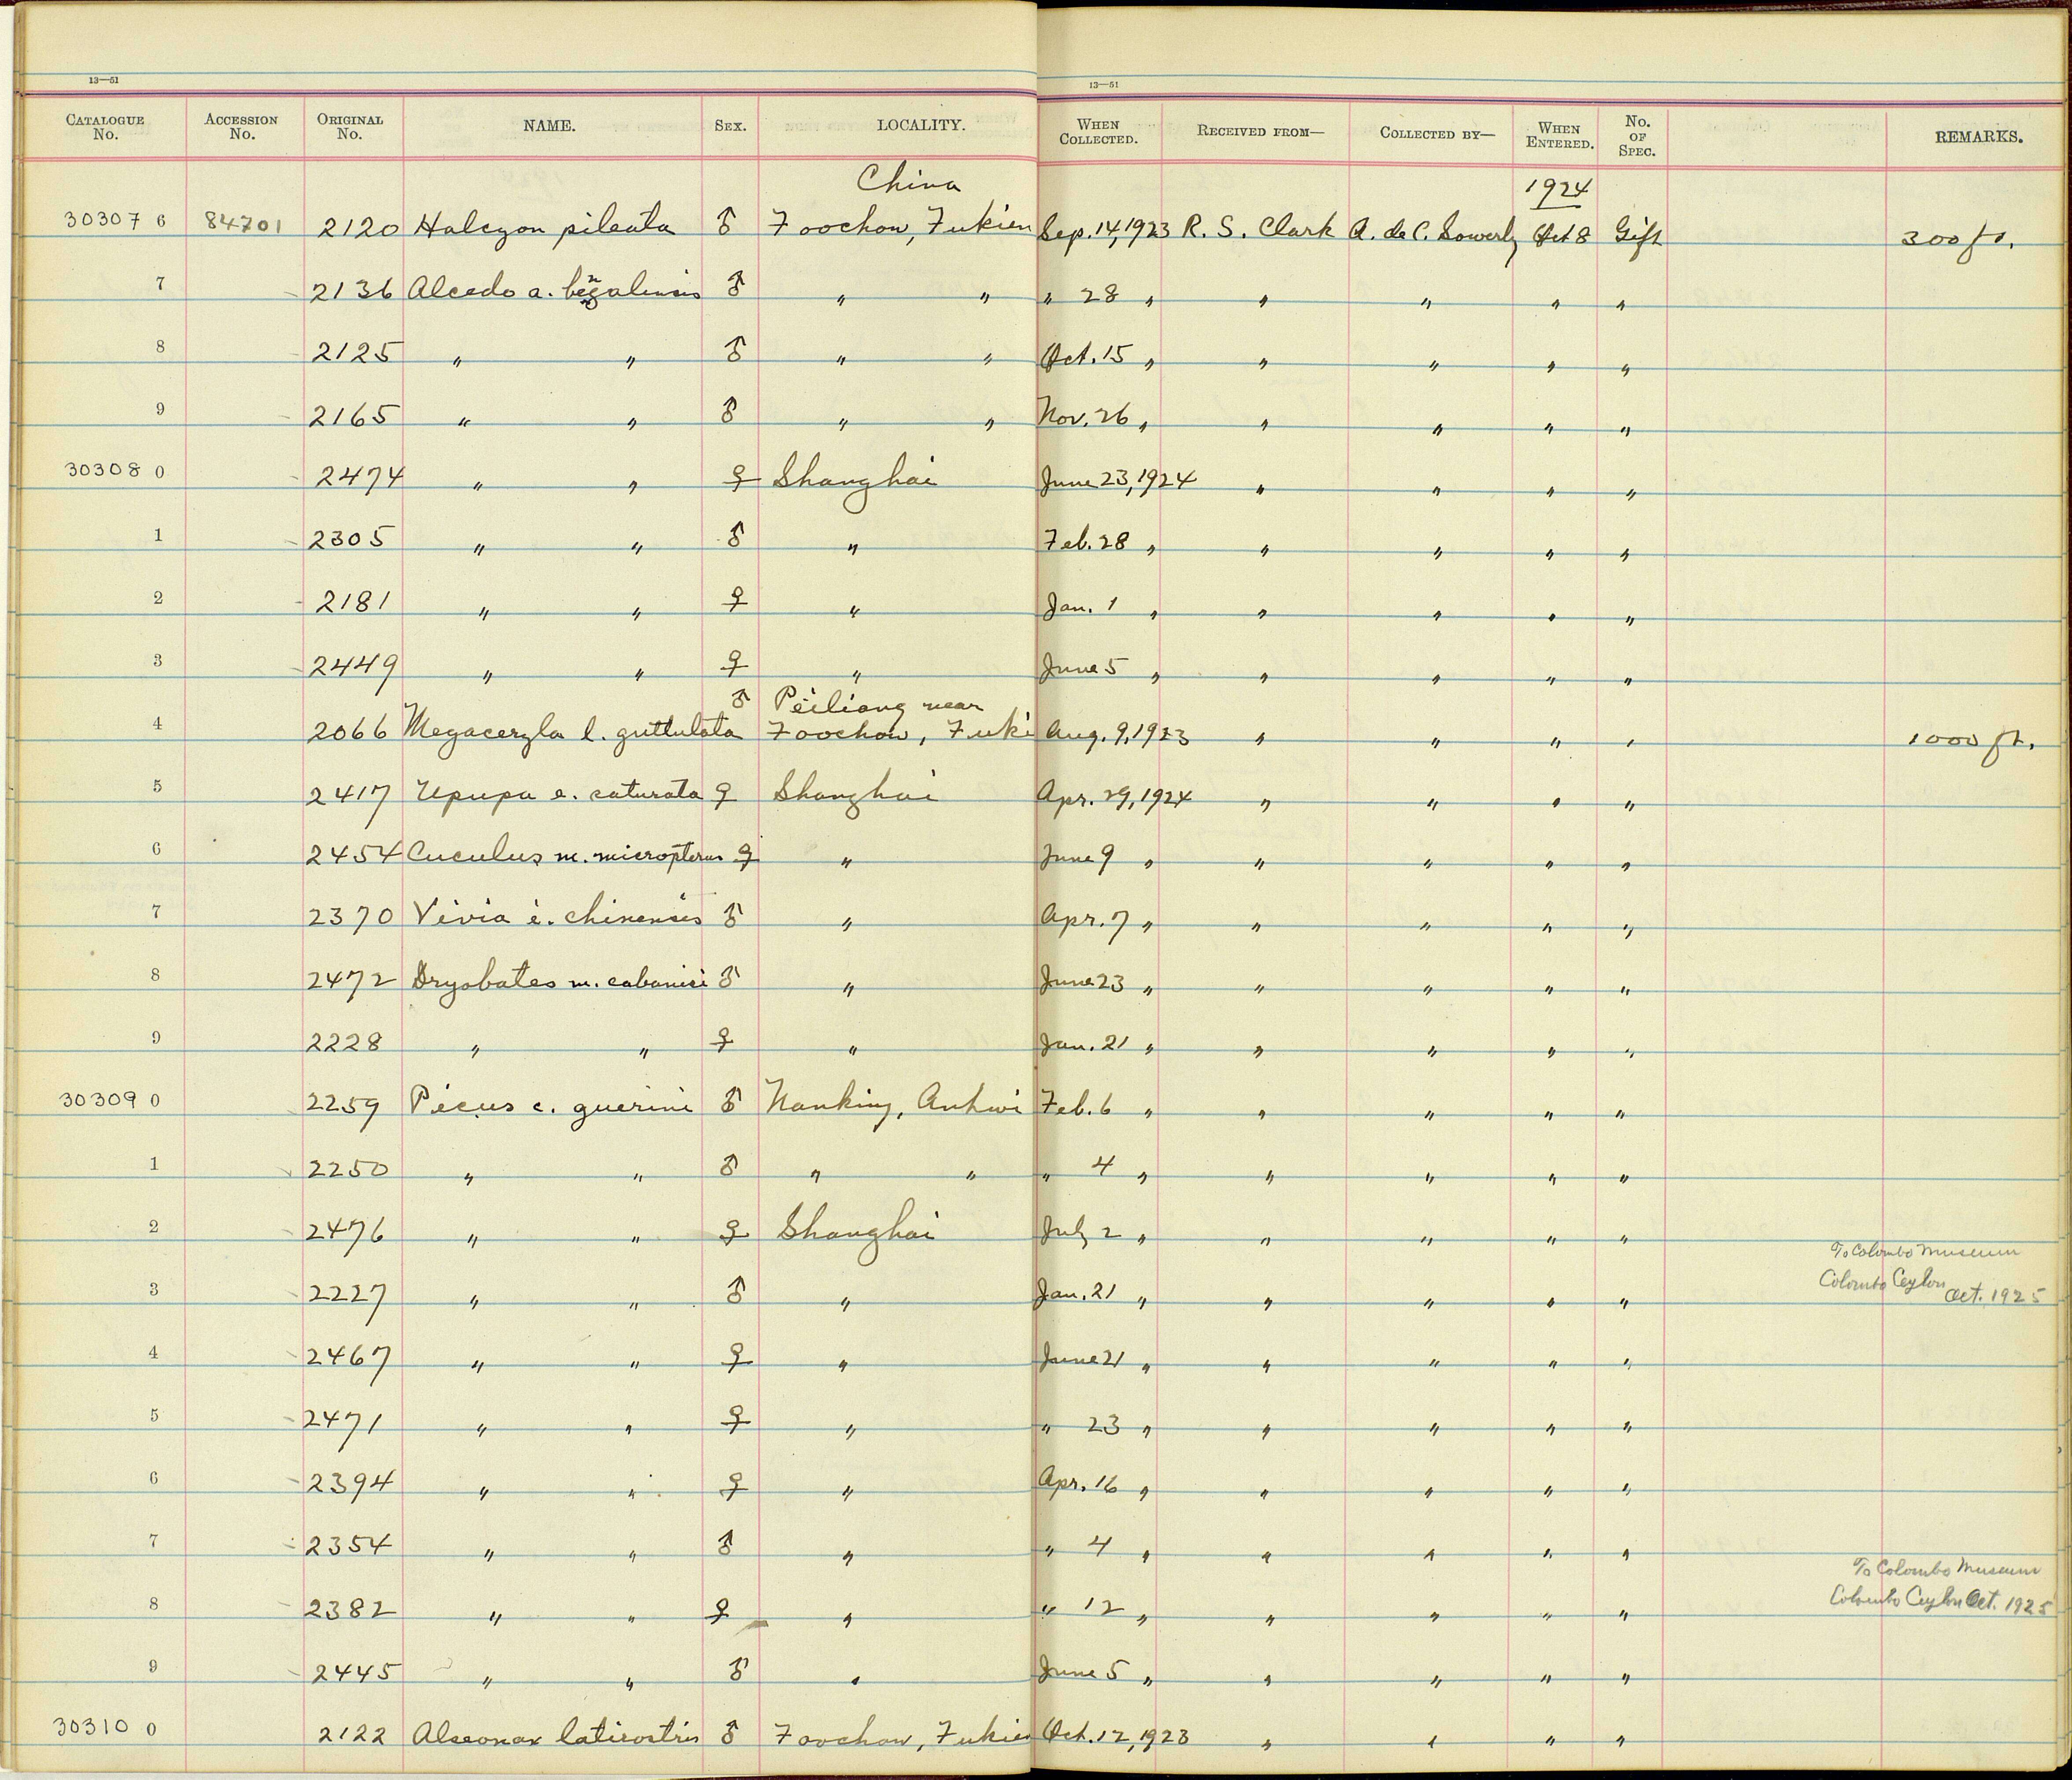 13—51 13—51
CATALOGUE No. ACCESSION No. ORIGINAL No. NAME. SEX. LOCALITY. WHEN COLLECTED. RECEIVED FROM— COLLECTED BY— WHEN ENTERED. No. OF SPEC. REMARKS.
China 1924
30307 6 84701 2120 Halcyon pileata ♂ Foochow, Fukien Sep. 14, 1923 R. S. Clark A. de C. Sowerby Oct 8 Gift 300 ft.
7 2136 Alcedo a. bengalensis ♂ " " " 28 " " " " "
8 2125 " " ♂ " " Oct. 15 " " " " "
9 2165 " " ♂ " " Nov. 26 " " " " "
30308 0 2474 " " ♀ Shanghai June 23, 1924 " " " "
1 2305 " " ♂ " Feb. 28 " " " " "
2 2181 " " ♀ " Jan. 1 " " " " "
3 2449 " " ♀ " June 5 " " " " "
♂ Peiliang near
4 2066 Megaceryla l. guttulata Foochow, Fuki Aug. 9, 1923 " " " " 1000 ft.
5 2417 Upupa e. saturata ♀ Shanghai Apr. 29, 1924 " " " "
6 2454 Cuculus m. micropterus ♀ " June 9 " " " " "
7 2370 Vivia i. chinensis ♂ " Apr. 7 " " " " "
8 2472 Dryobates m. cabanisi ♂ " June 23 " " " " "
9 2228 " " ♀ " Jan. 21 " " " " "
30309 0 2259 Picus c. guerini ♂ Nanking, Anhwi Feb. 6 " " " " "
1 2250 " " ♂ " " " 4 " " " " "
2 2476 " " ♀ Shanghai July 2 " " " " "
To Colombo Museum
3 2227 " " ♂ " Jan. 21 " " " " " Colombo Ceylon Oct. 1925
4 2467 " " ♀ " June 21 " " " " "
5 2471 " " ♀ " " 23 " " " " "
6 2394 " " ♀ " Apr. 16 " " " " "
7 2354 " " ♂ " " 4 " " " " "
To Colombo Museum
8 2382 " " ♀ " " 12 " " " " " Colombo Ceylon Oct. 1925
9 2445 " " ♂ " June 5 " " " " "
30310 0 2122 Alseonax latirostris ♂ Foochow, Fukien Oct. 12, 1923 " " " "